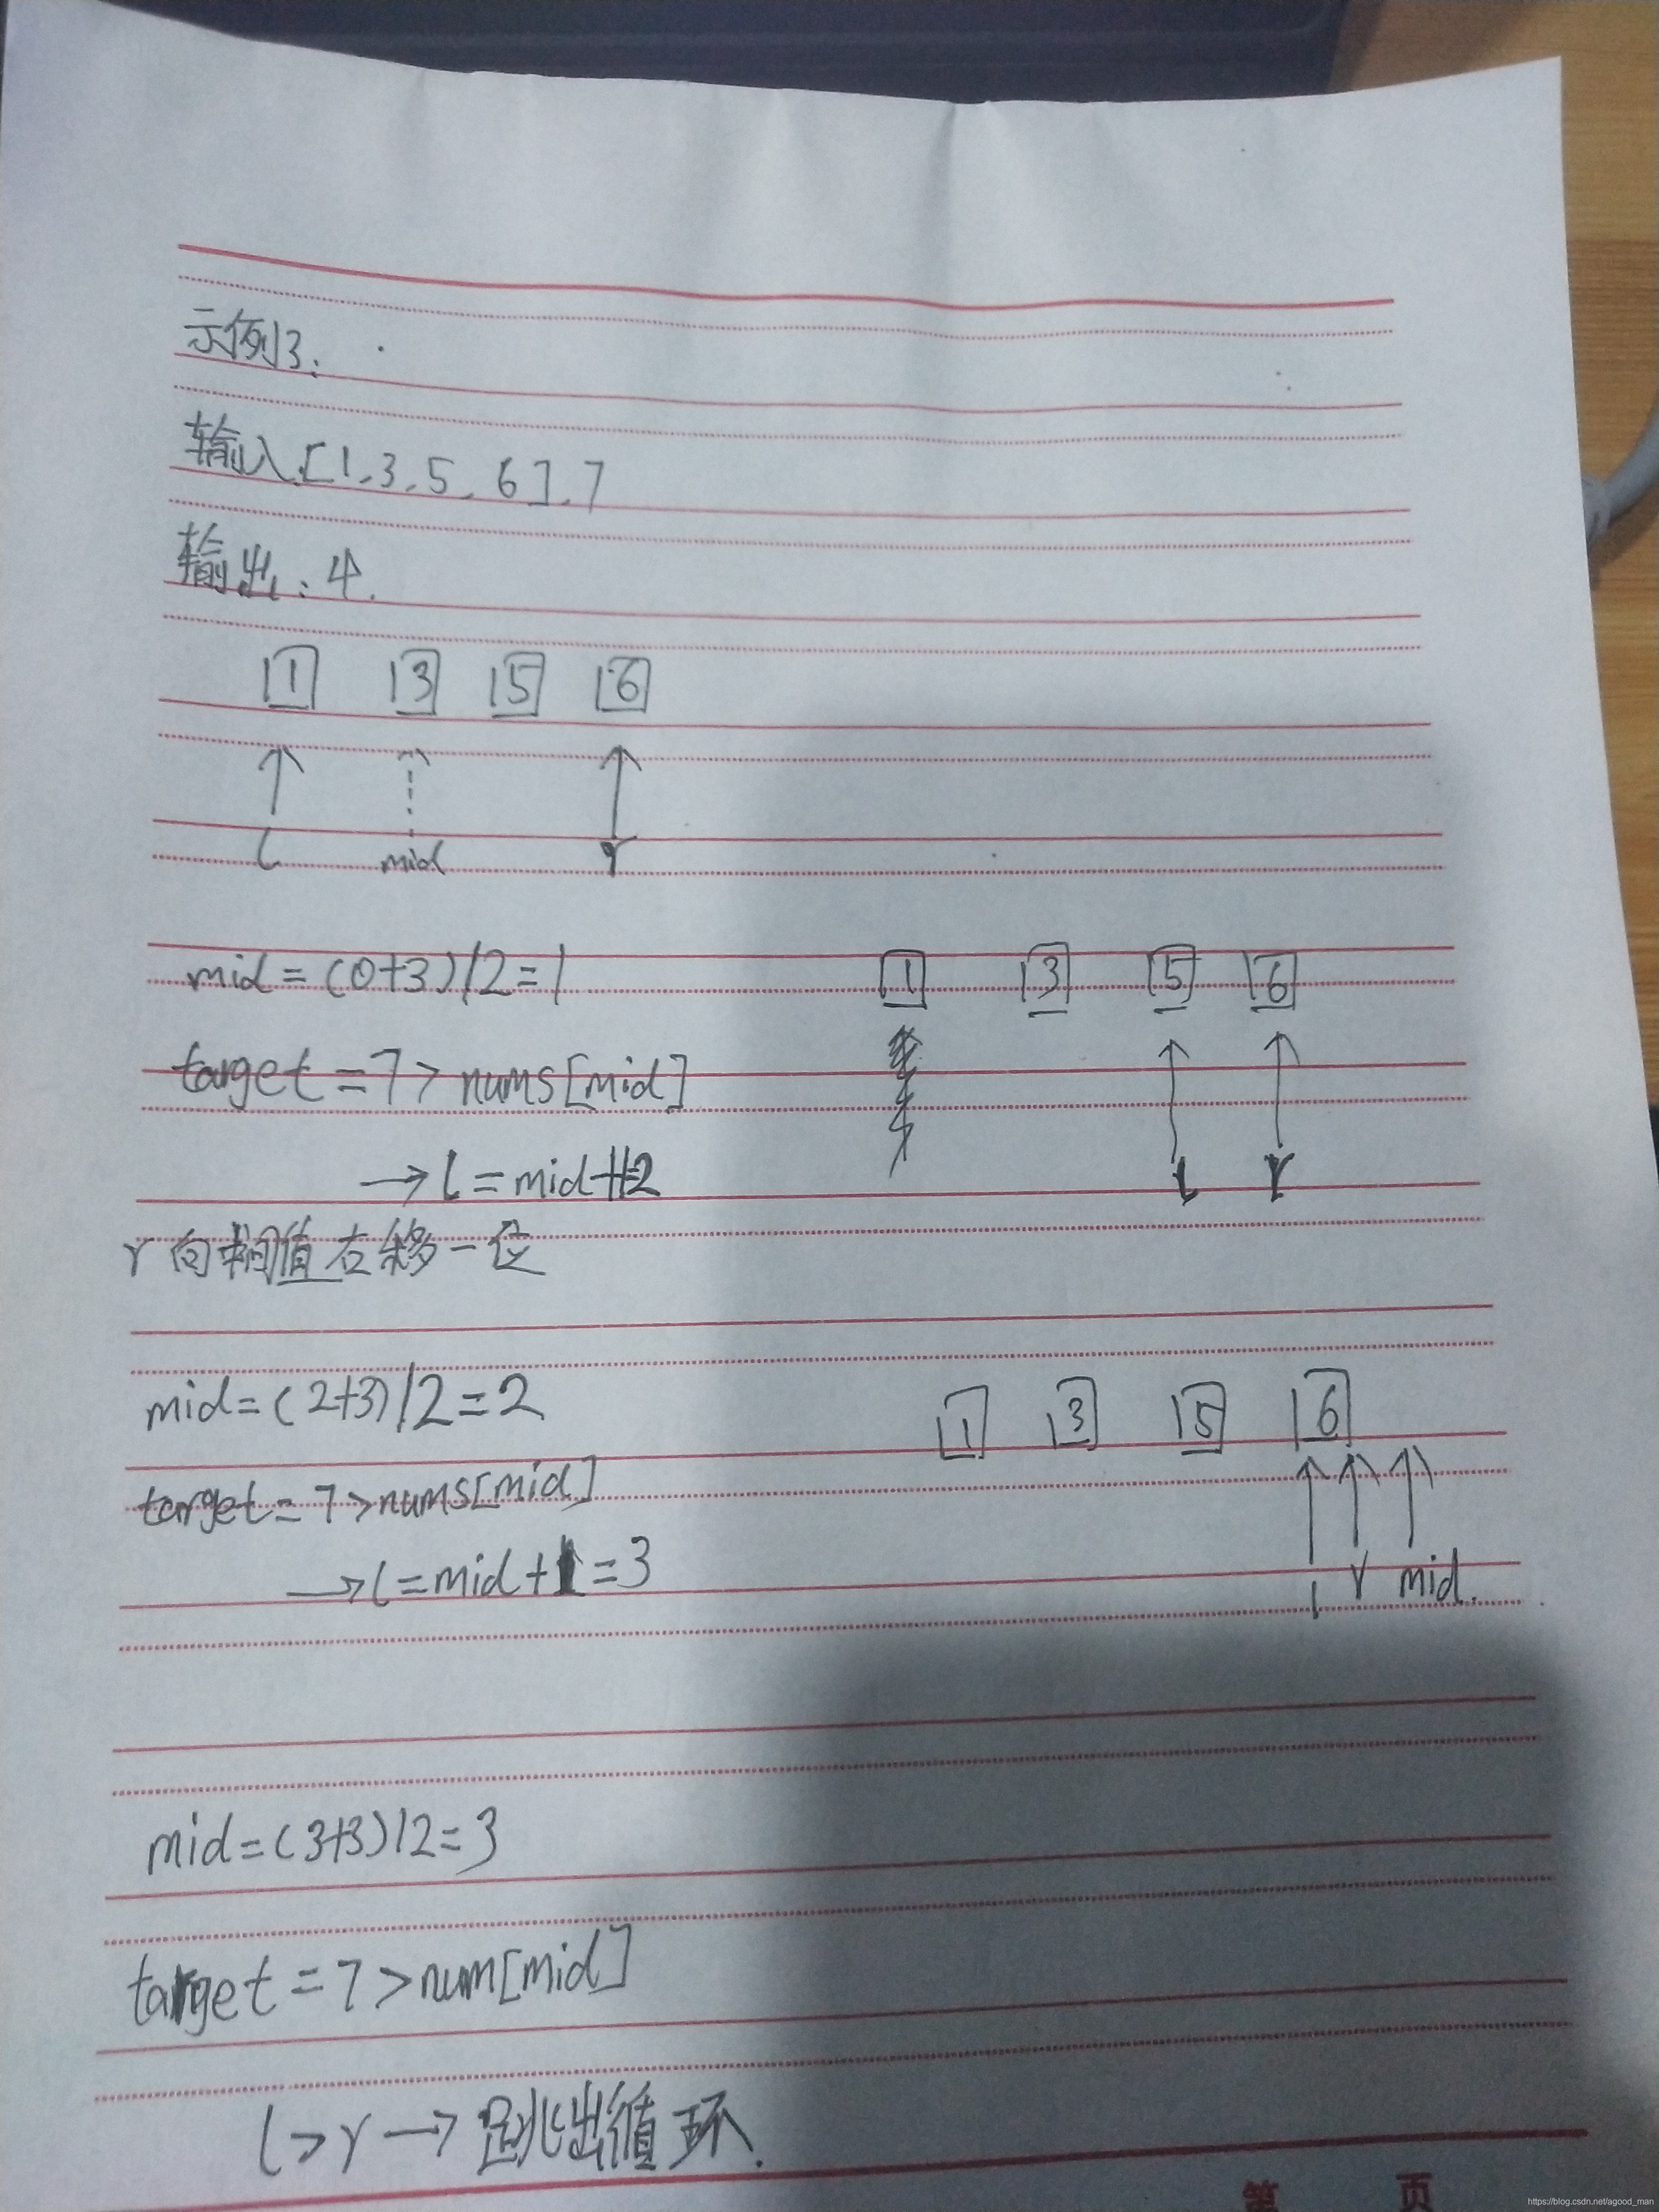 示例3:
输入[1,3,5,6],7
输出:4.
1 3 5 6
l mid r
mid=(0+3)/2=1
target=7>nums[mid]
→l=mid+1=2
1 3 5 6
l r
r向中间值右移一位
mid=(2+3)/2=2
target=7>nums[mid]
→l=mid+1=3
1 3 5 6
l r mid.
mid=(3+3)/2=3
target=7>num[mid]
l>r→跳出循环.
第 页
https://blog.csdn.net/agood_man